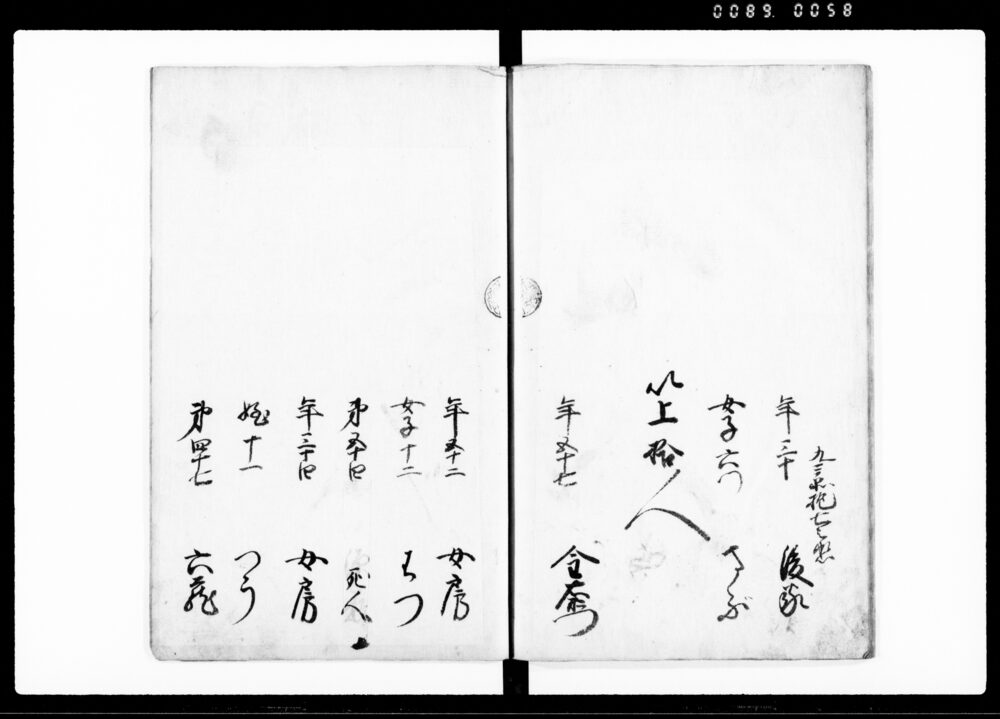 0089. 0058
年三十 後家
女子六つ
以上拾人
年五十七
年五十二 女房
女子十二 はつ
弟五十四 死人
年三十四 女房
姪十一 つう
弟四十七 六蔵